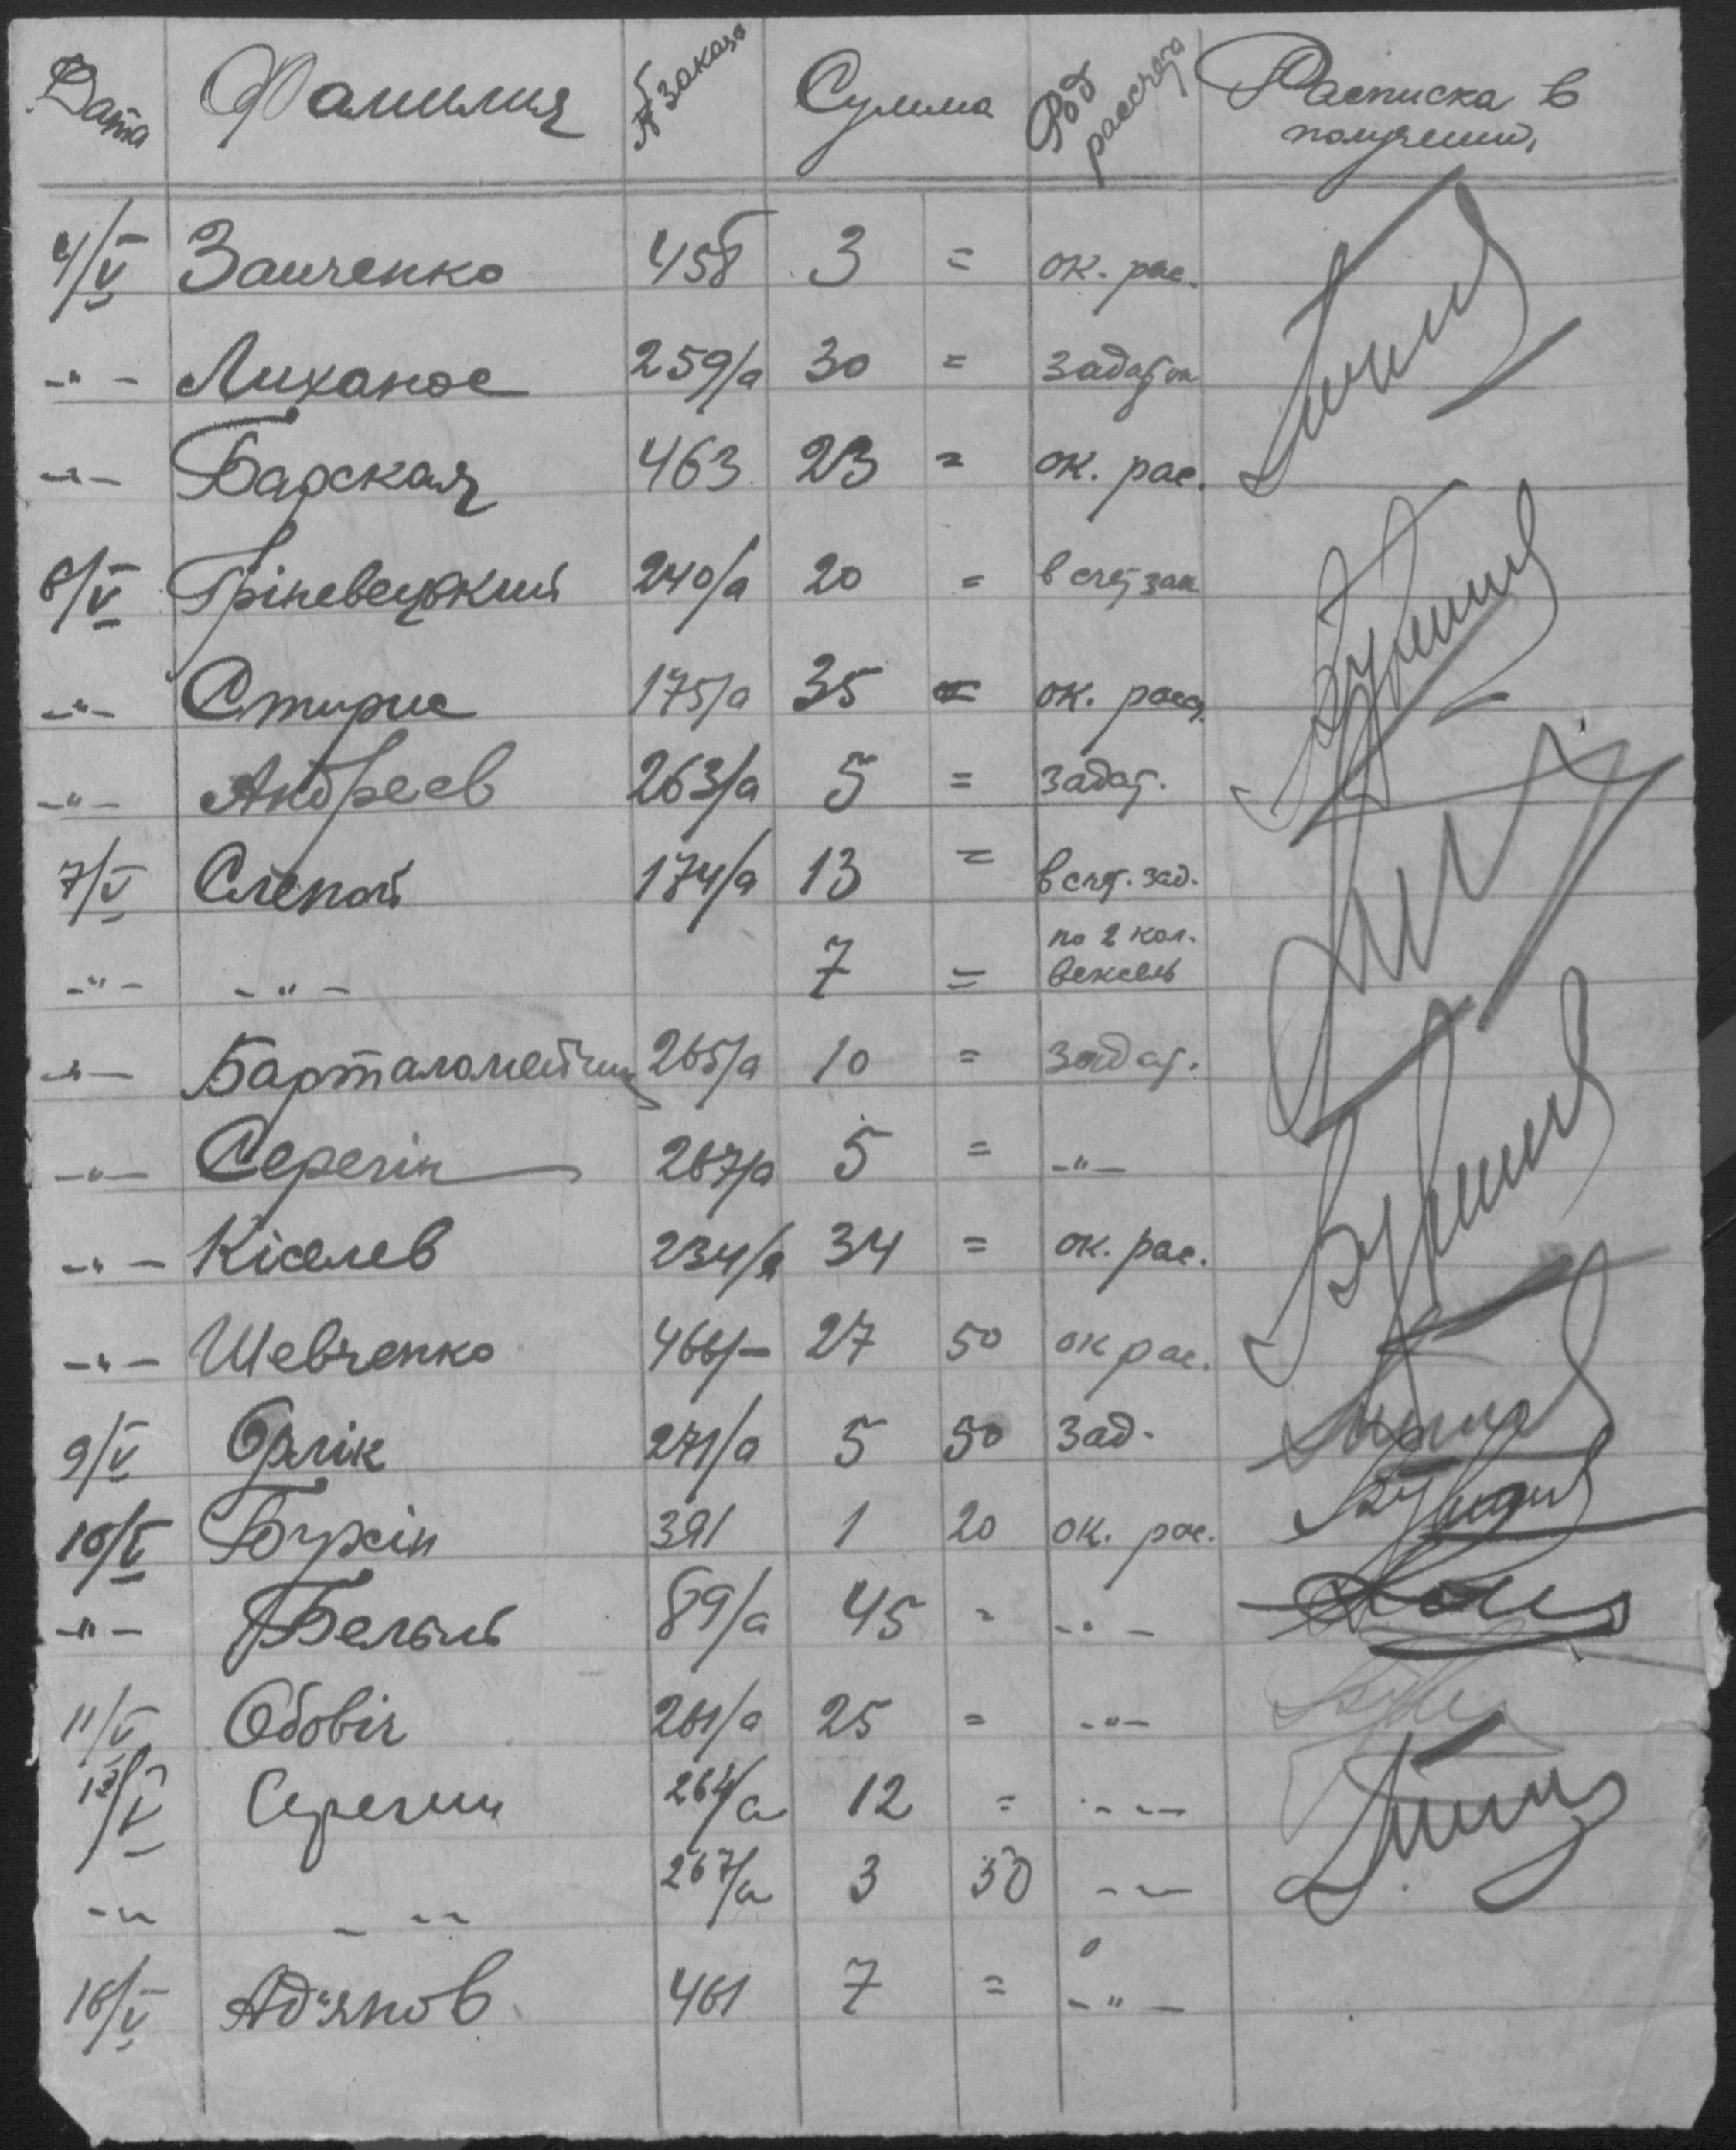 Дата Фамилия № заказа Сумма Род рассчета Расписка в получении,
4/V Заиченко 458 3 = ок. рас.
-"- Лиханос 259/а 30 = задаток
-"- Барская 463 23 = ок. рас.
6/V Гріневецький 240/а 20 = в счет зак.
-"- Стирис 175/а 35 = ок. расч.
-"- Андреев 263/а 5 = задат.
7/V Слепой 174/а 13 = в счет. зад.
-"- -"- 7 = по 2 кол. вексель
-"- 265/а 10 = задат.
-"- Серегін 267/а 5 = -"-
-"- Кіселев 234/а 34 = ок. рас.
-"- Шевченко 466/- 27 50 ок рас.
9/V Орлік 271/а 5 50 зад.
10/V Бужін 391 1 20 ок. рас.
-"- 89/а 45 = -"-
11/V Обовіч 261/а 25 = -"-
13/V Серегин 264/а 12 = -"-
-"- -"- 267/а 3 50 -"-
16/V Ад'янов 461 7 = -"-